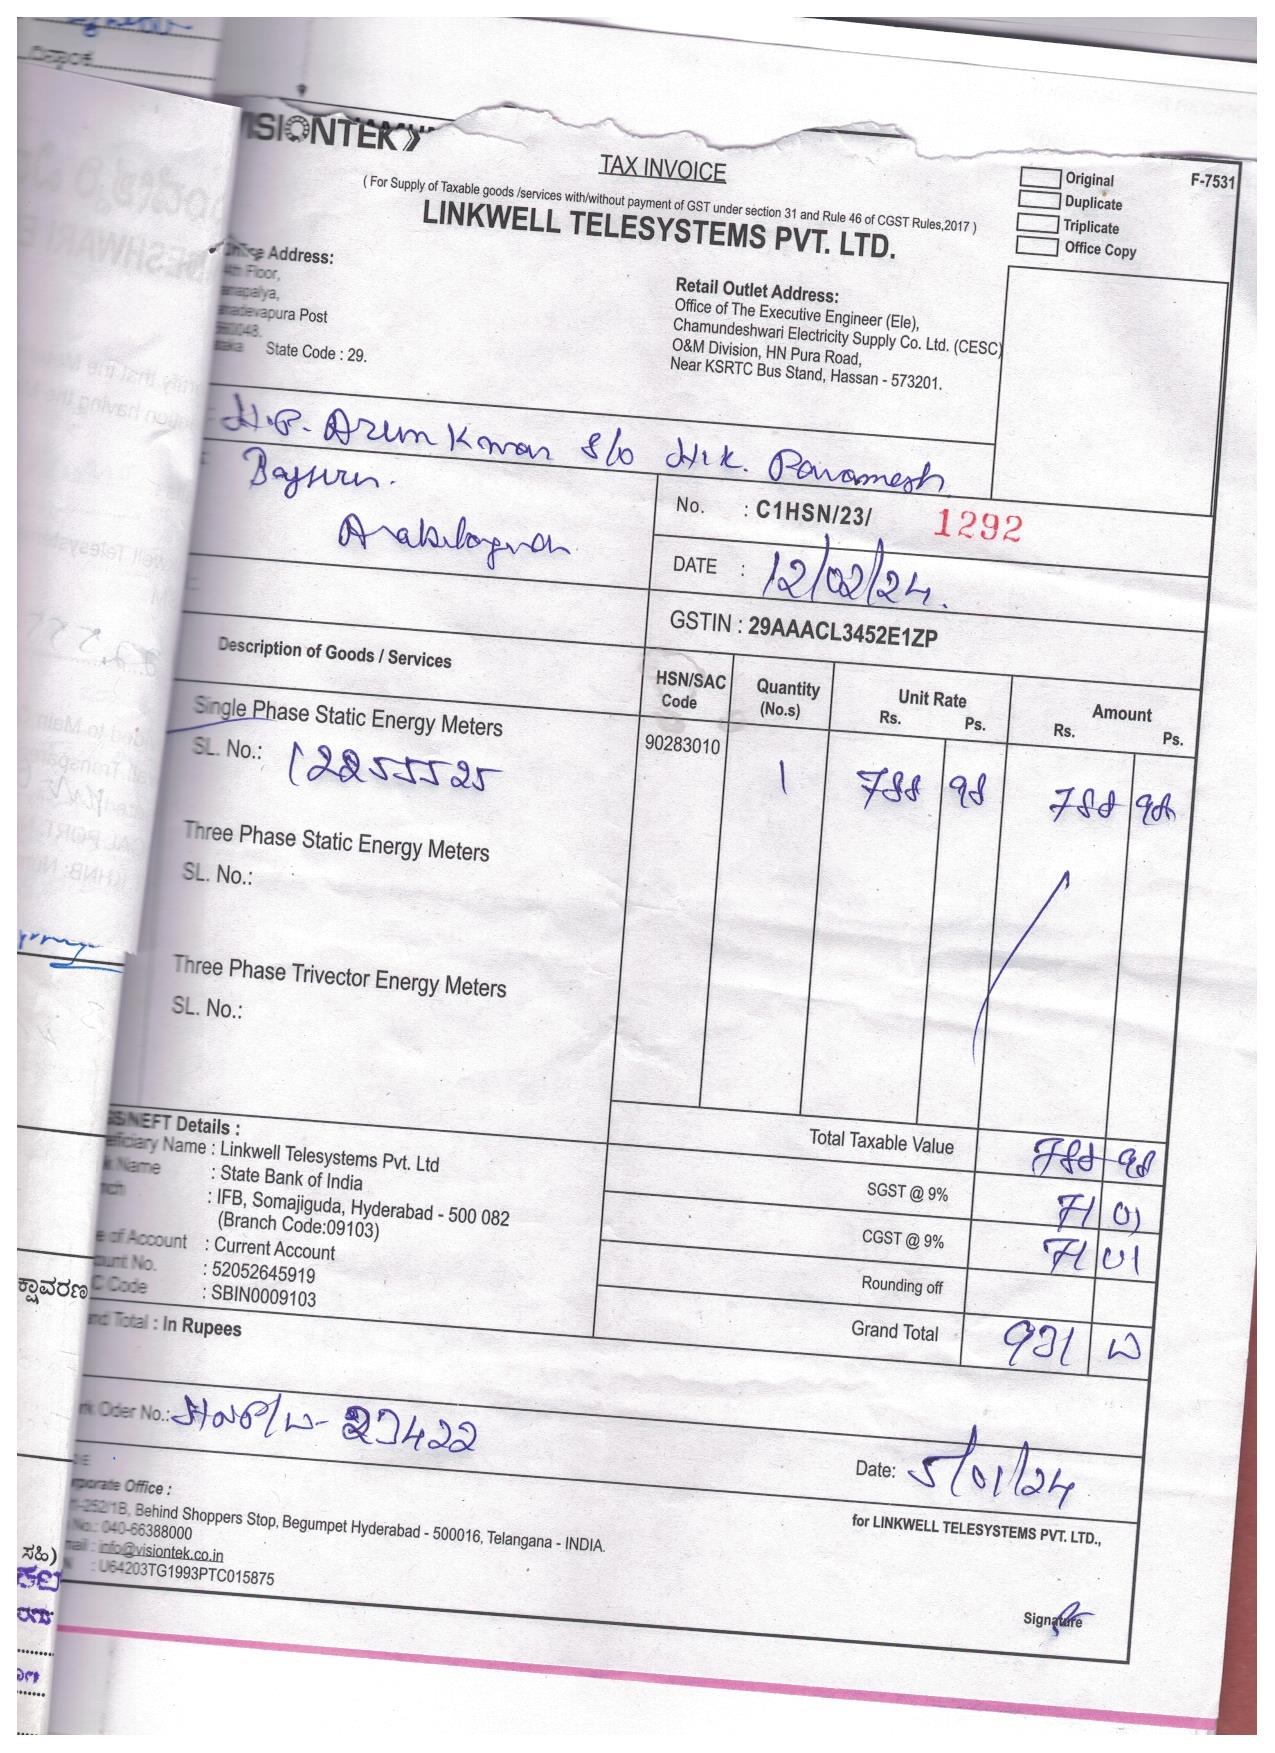 VISIONTEK
TAX INVOICE
( For Supply of Taxable goods /services with/without payment of GST under section 31 and Rule 46 of CGST Rules,2017 )
LINKWELL TELESYSTEMS PVT. LTD.
Original
F-7531
Duplicate
Triplicate
Office Copy
Office Address:
4th Floor,
Post
State Code : 29.
Retail Outlet Address:
Office of The Executive Engineer (Ele),
Chamundeshwari Electricity Supply Co. Ltd. (CESC)
O&M Division, HN Pura Road,
Near KSRTC Bus Stand, Hassan - 573201.
H.P. Arun Kumar S/o H.K. Paramesh
No. : C1HSN/23/ 1292
DATE : 12/02/24.
GSTIN : 29AAACL3452E1ZP
Description of Goods / Services
HSN/SAC Code
Quantity (No.s)
Unit Rate
Rs. Ps.
Amount
Rs. Ps.
Single Phase Static Energy Meters
90283010
SL. No.: 12255525
1 788 98 788 98
Three Phase Static Energy Meters
SL. No.:
Three Phase Trivector Energy Meters
SL. No.:
Total Taxable Value 788 98
SGST @ 9% 71 01
CGST @ 9% 71 01
Rounding off
Grand Total 931 00
NEFT Details :
Name : Linkwell Telesystems Pvt. Ltd
Name : State Bank of India
: IFB, Somajiguda, Hyderabad - 500 082
(Branch Code:09103)
of Account : Current Account
No. : 52052645919
Code : SBIN0009103
Total : In Rupees
Oder No.: 23422
Date: 5/01/24
Office :
Behind Shoppers Stop, Begumpet Hyderabad - 500016, Telangana - INDIA.
No.: 040-66388000
: info@visiontek.co.in
: U64203TG1993PTC015875
for LINKWELL TELESYSTEMS PVT. LTD.,
Signature